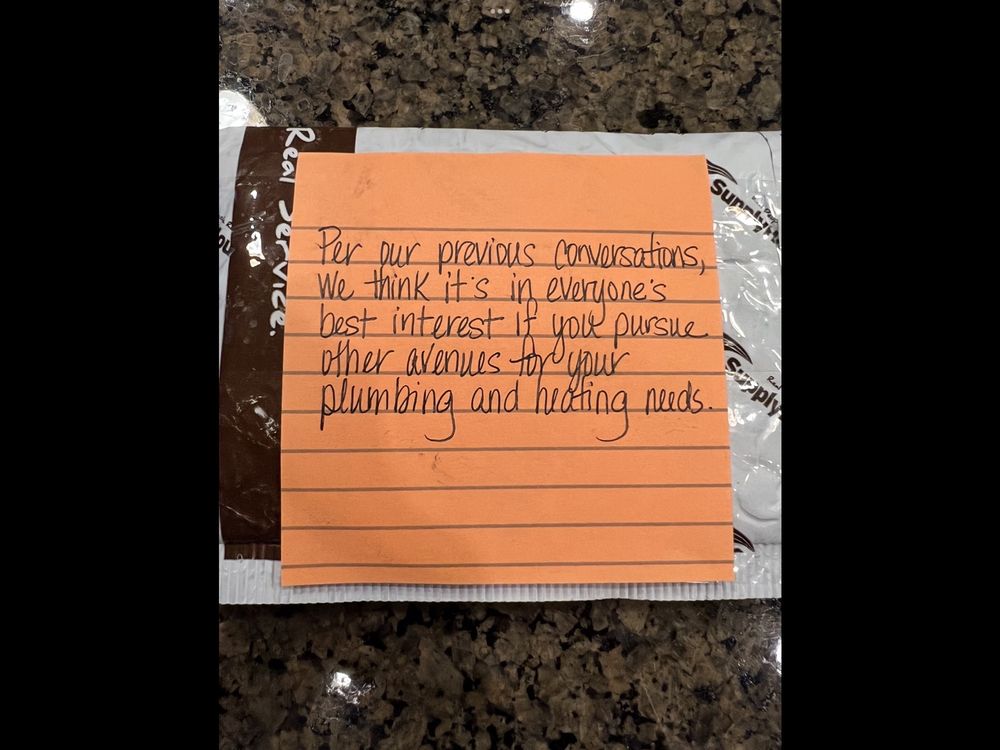 Real Service.
Per our previous conversations,
We think it's in everyone's
best interest if you pursue
other avenues for your
plumbing and heating needs.
Supply
Supply